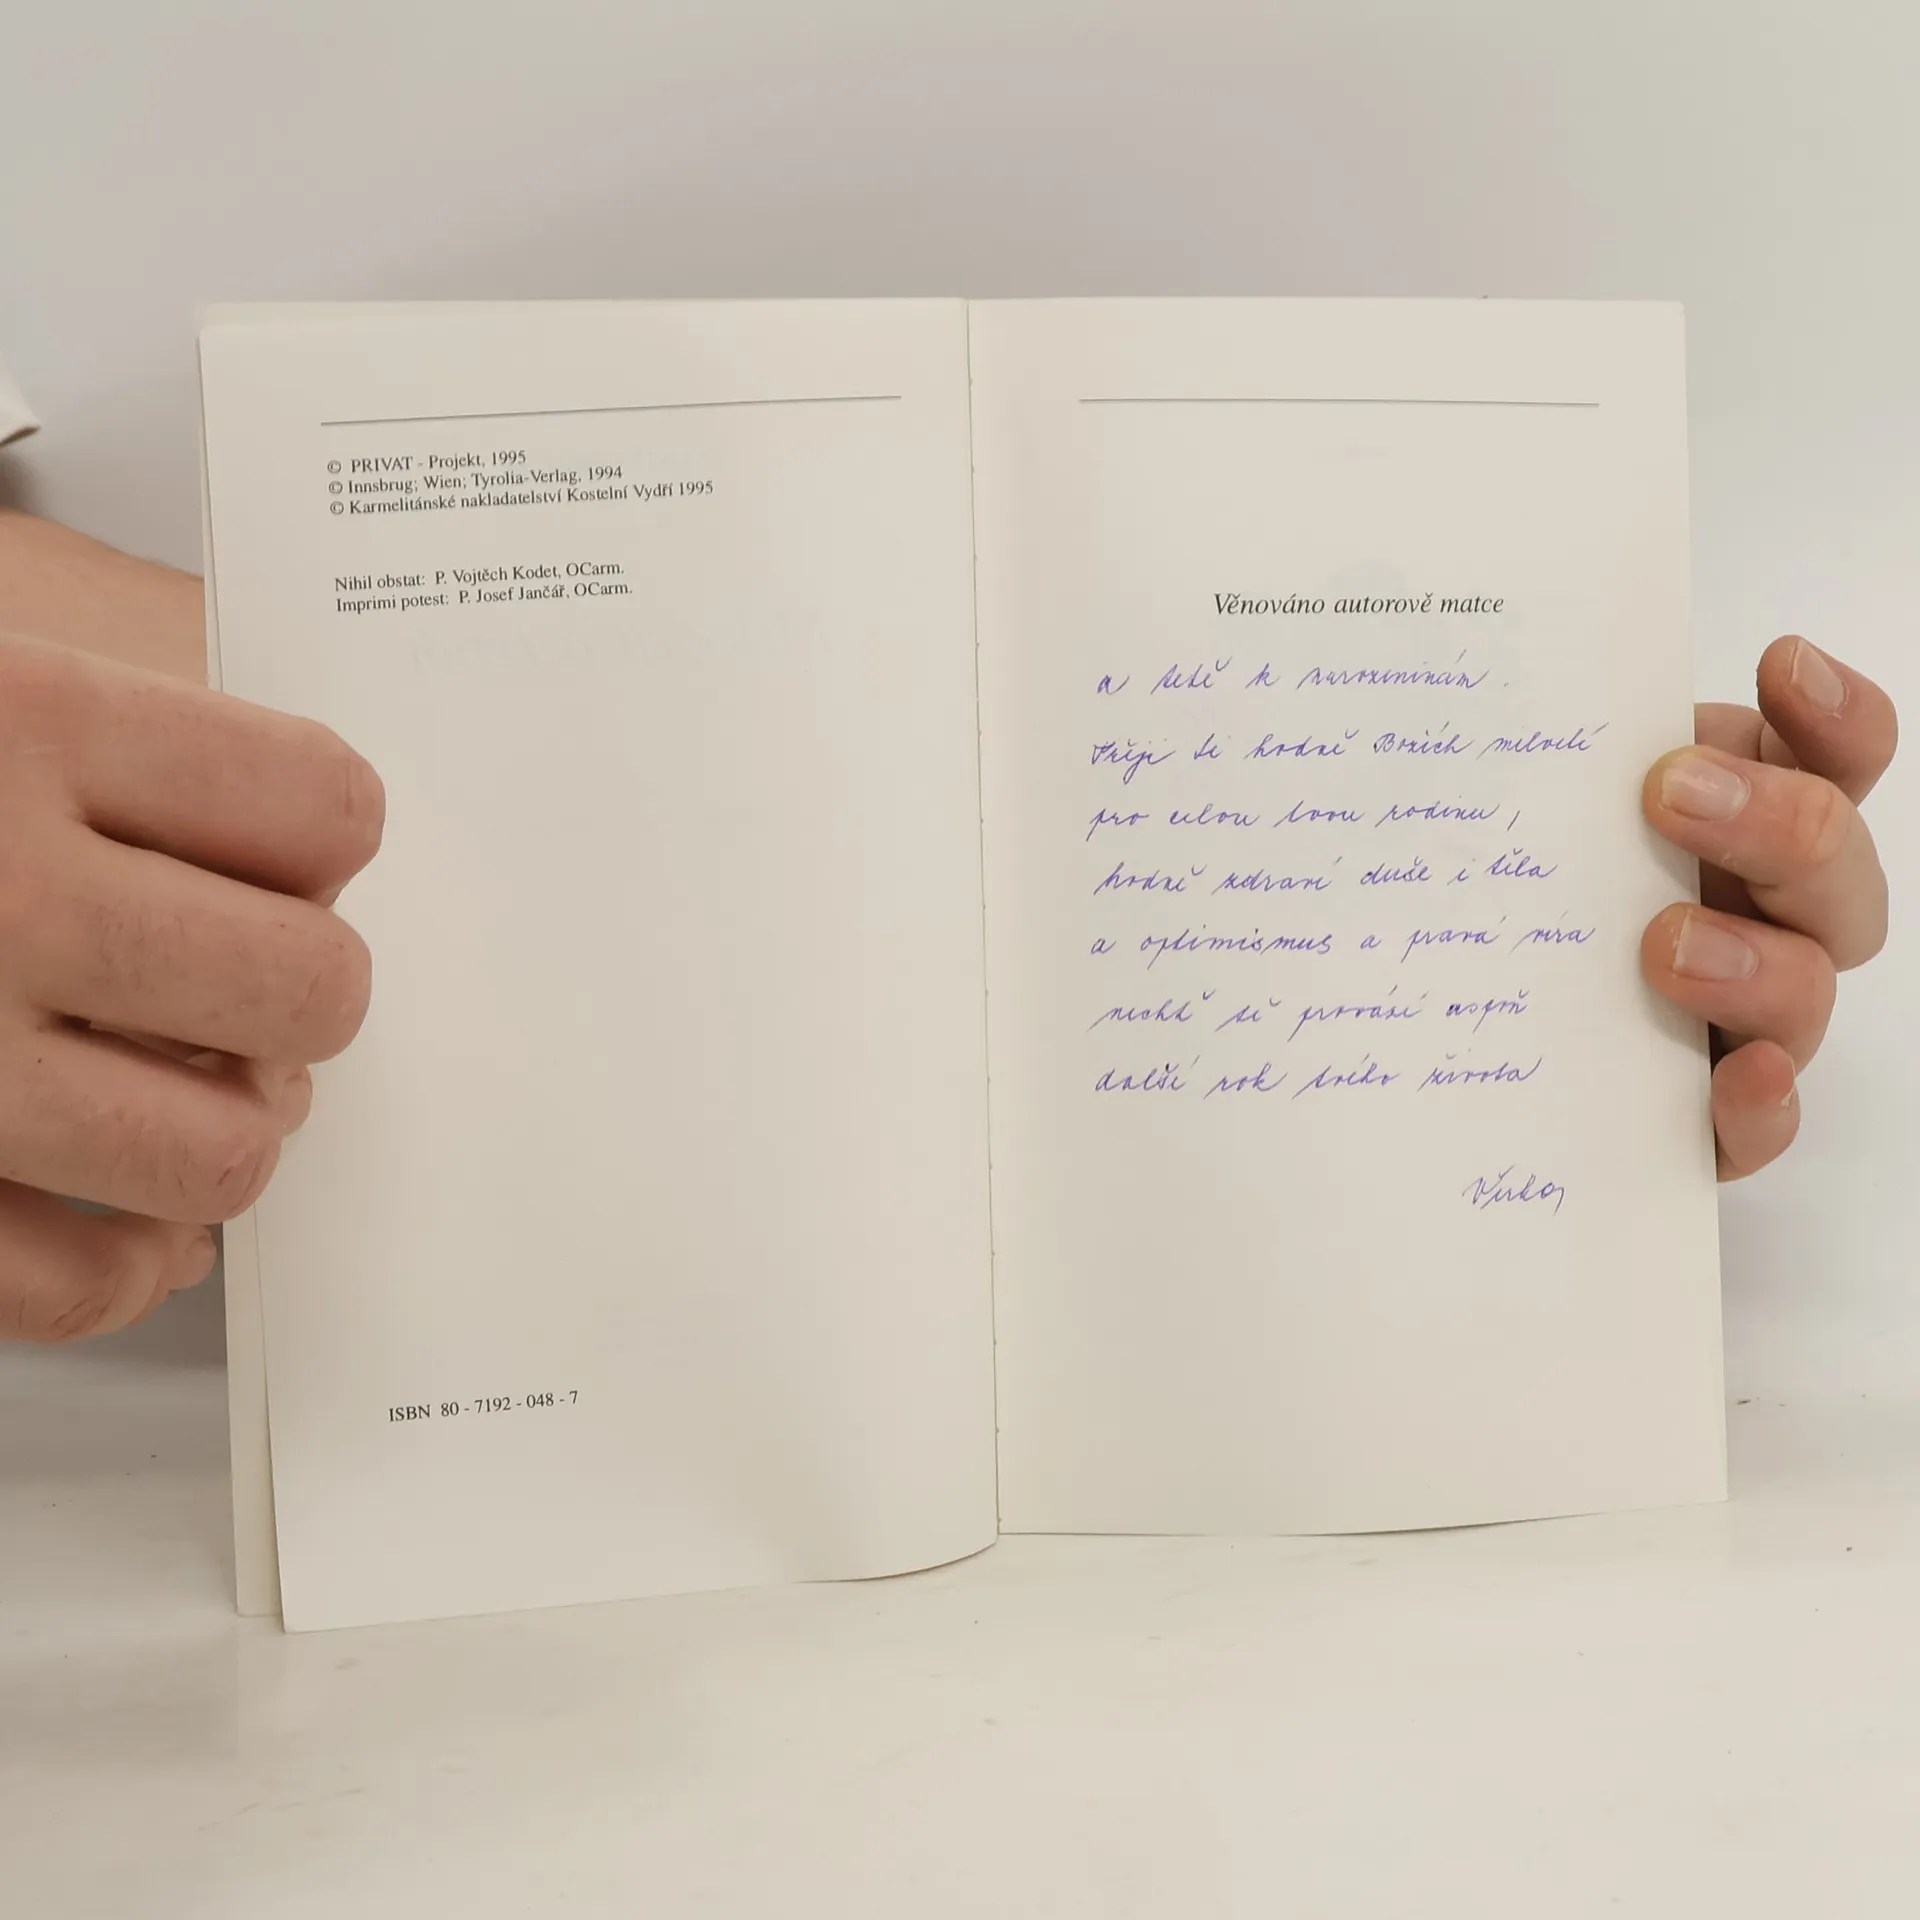 © PRIVAT - Projekt, 1995
© Innsbrug; Wien; Tyrolia-Verlag, 1994
© Karmelitánské nakladatelství Kostelní Vydří 1995
Nihil obstat: P. Vojtěch Kodet, OCarm.
Imprimi potest: P. Josef Jančář, OCarm.
ISBN 80 - 7192 - 048 - 7
Věnováno autorově matce
a tobě k narozeninám.
Přeji ti hodně Božích milostí
pro celou tvou rodinu,
hodně zdraví duše i těla
a optimismus a pravá víra
nechť tě provází aspoň
další rok tvého života
Věrka